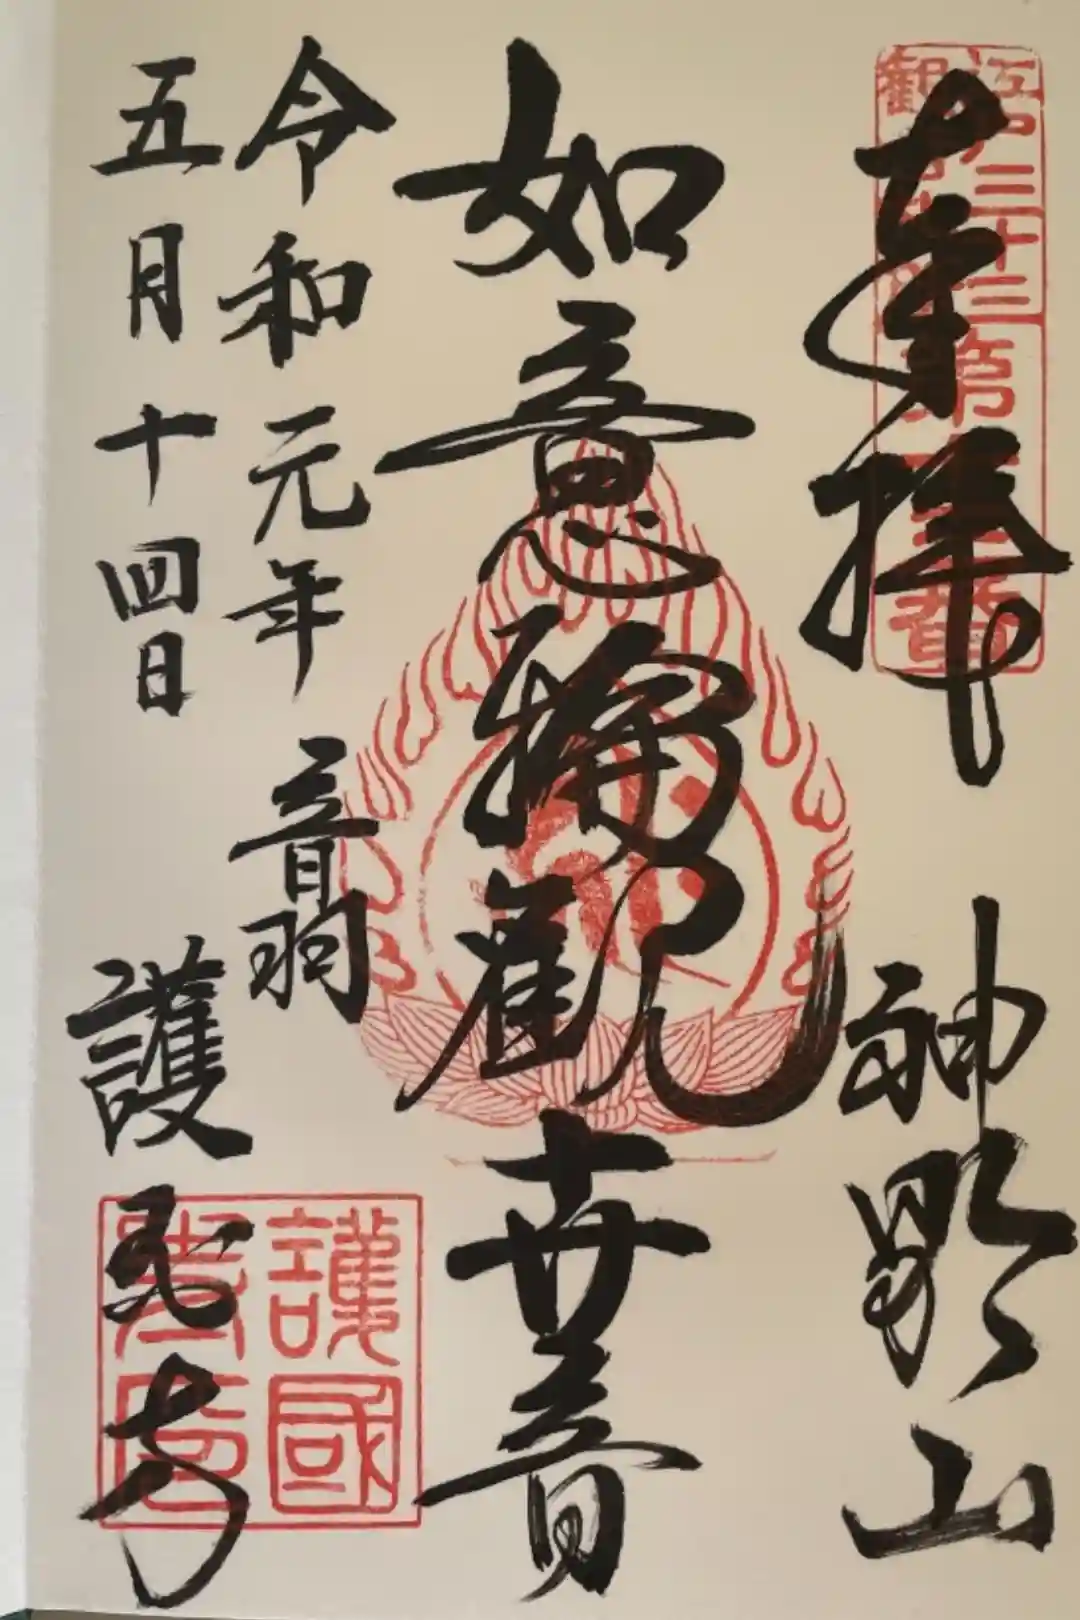 江戸三十三
第十三番
奉拝
神齢山
如意輪觀世音
令和元年
五月十四日
音羽
護国寺
護國